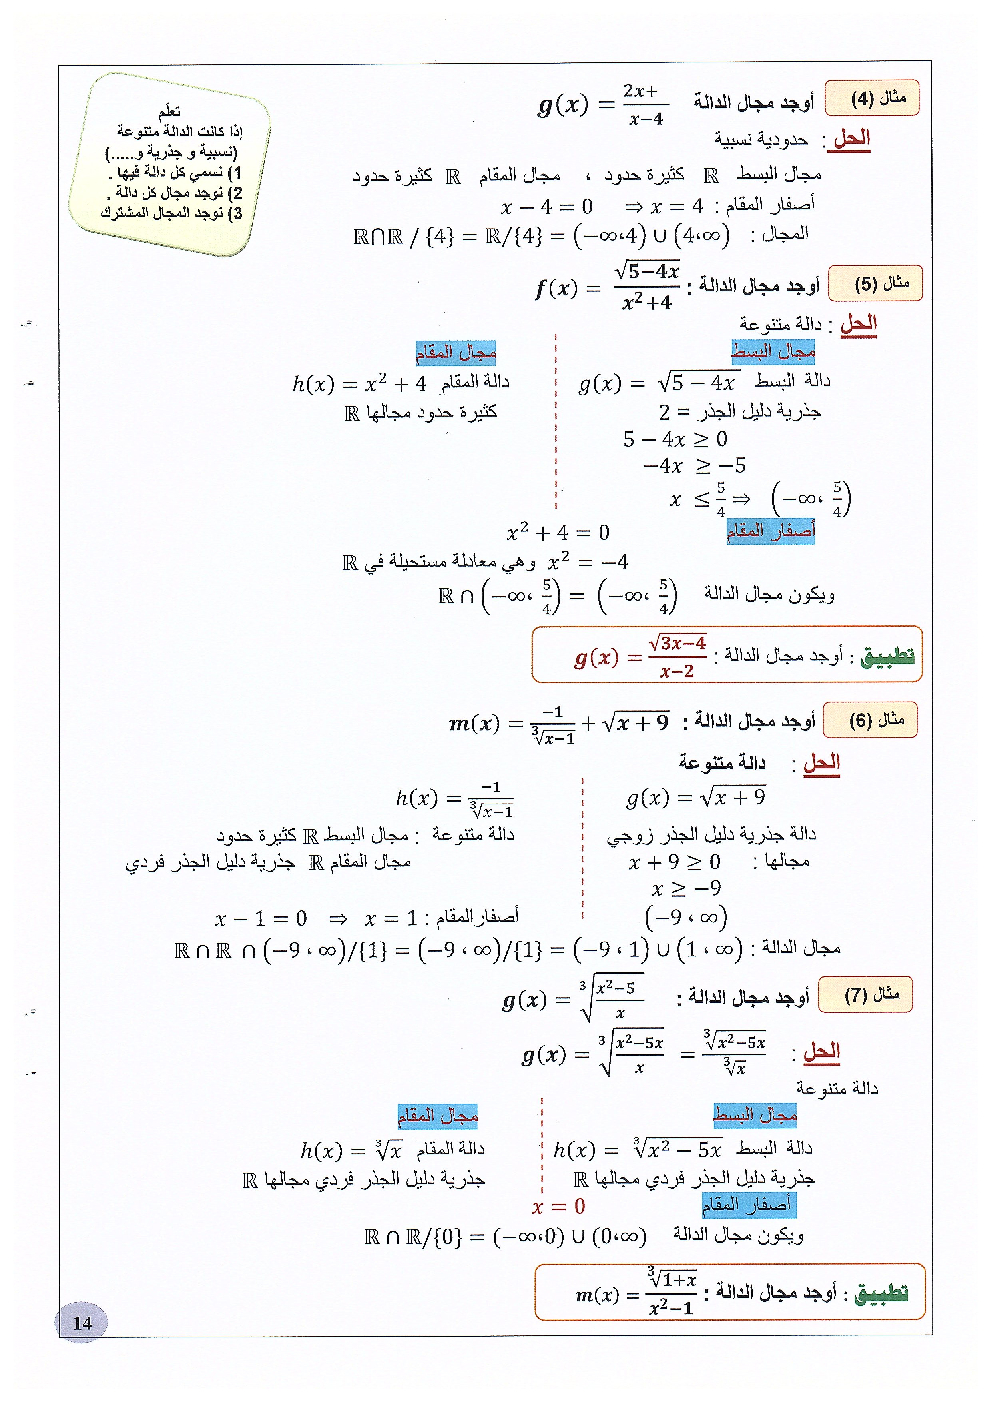 مثال (4) أوجد مجال الدالة g(x) = \frac{2x+}{x-4}
الحل : حدودية نسبية
مجال البسط ℝ كثيرة حدود ، مجال المقام ℝ كثيرة حدود
أصفار المقام : x − 4 = 0 ⇒ x = 4
المجال : ℝ∩ℝ / {4} = ℝ/{4} = (−∞،4) ∪ (4،∞)
تعلّم
إذا كانت الدالة متنوعة
(نسبية و جذرية و.....)
1) نسمي كل دالة فيها .
2) نوجد مجال كل دالة .
3) نوجد المجال المشترك
مثال (5) أوجد مجال الدالة : f(x) = \frac{√5−4x}{x²+4}
الحل : دالة متنوعة
مجال البسط
دالة البسط g(x) = √5 − 4x
جذرية دليل الجذر = 2
5 − 4x ≥ 0
−4x ≥ −5
x ≤ \frac{5}{4} ⇒ (−∞، \frac{5}{4})
مجال المقام
دالة المقام h(x) = x² + 4
كثيرة حدود مجالها ℝ
أصفار المقام x² + 4 = 0
x² = −4 وهي معادلة مستحيلة في ℝ
ويكون مجال الدالة ℝ ∩ (−∞، \frac{5}{4}) = (−∞، \frac{5}{4})
تطبيق : أوجد مجال الدالة : g(x) = \frac{√3x−4}{x−2}
مثال (6) أوجد مجال الدالة : m(x) = \frac{−1}{∛x−1} + √x + 9
الحل : دالة متنوعة
g(x) = √x + 9
دالة جذرية دليل الجذر زوجي
مجالها : x + 9 ≥ 0
x ≥ −9
(−9 ، ∞)
h(x) = \frac{−1}{∛x−1}
دالة متنوعة : مجال البسط ℝ كثيرة حدود
مجال المقام ℝ جذرية دليل الجذر فردي
أصفار المقام : x − 1 = 0 ⇒ x = 1
مجال الدالة : ℝ ∩ ℝ ∩ (−9 ، ∞)/{1} = (−9 ، ∞)/{1} = (−9 ، 1) ∪ (1 ، ∞)
مثال (7) أوجد مجال الدالة : g(x) = ∛\frac{x²−5}{x}
الحل : g(x) = ∛\frac{x²−5x}{x} = \frac{∛x²−5x}{∛x}
دالة متنوعة
مجال البسط
دالة البسط h(x) = ∛x² − 5x
جذرية دليل الجذر فردي مجالها ℝ
مجال المقام
دالة المقام h(x) = ∛x
جذرية دليل الجذر فردي مجالها ℝ
أصفار المقام x = 0
ويكون مجال الدالة ℝ ∩ ℝ/{0} = (−∞،0) ∪ (0،∞)
تطبيق : أوجد مجال الدالة : m(x) = \frac{∛1+x}{x²−1}
14